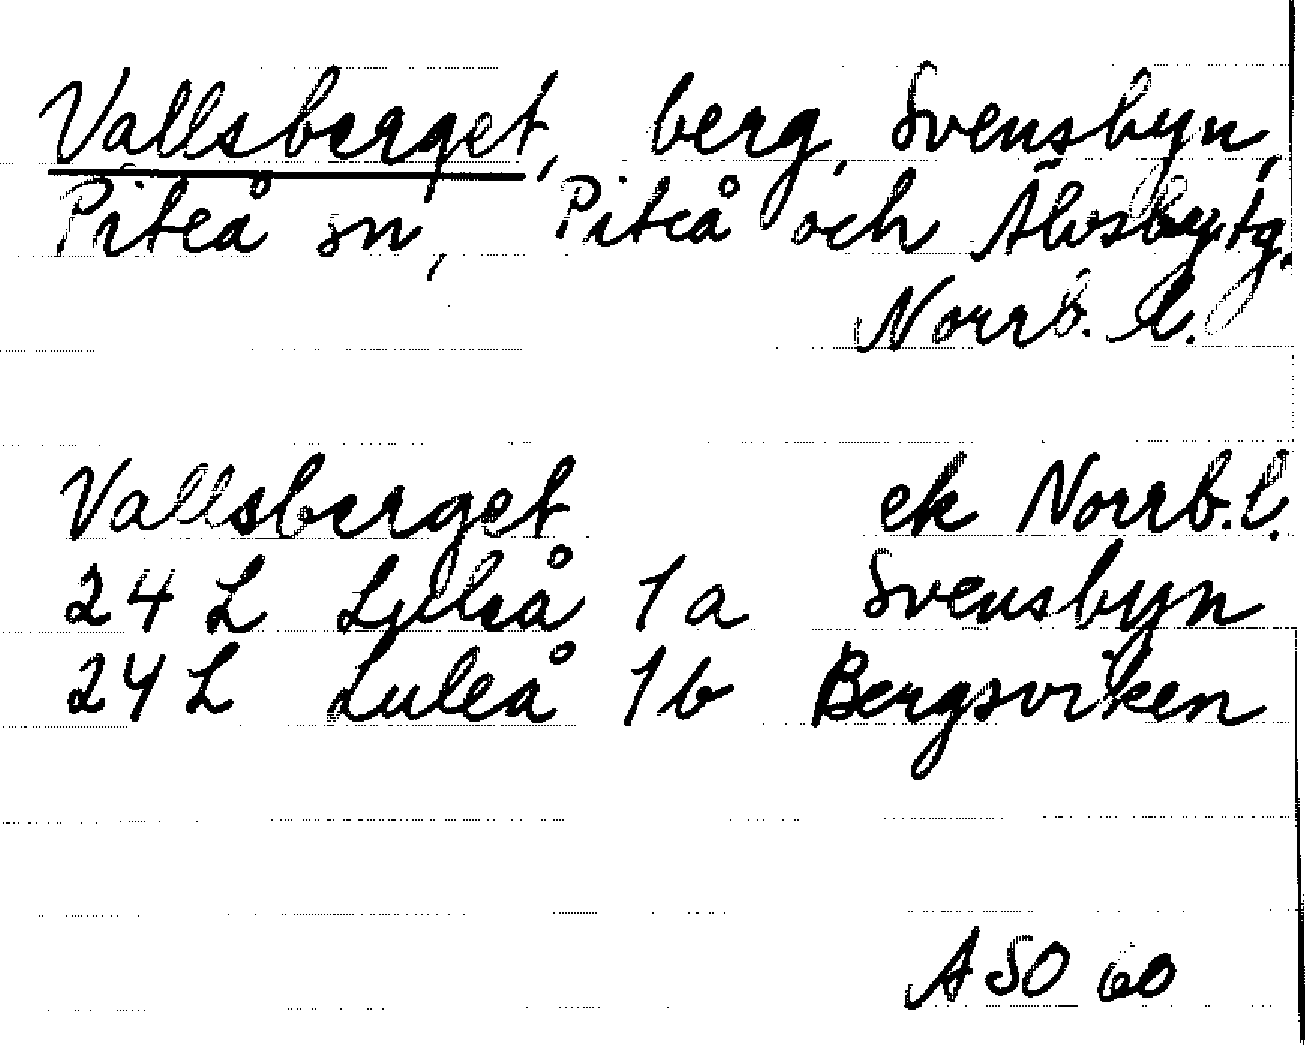 Vallsberget, berg, Svensbyn,
Piteå sn, Piteå och Älvsby tg.
Norrb. l.
Vallsberget ek Norrb. l.
24 L Luleå 1a Svensbyn
24 L Luleå 1b Bergsviken
ASO 60